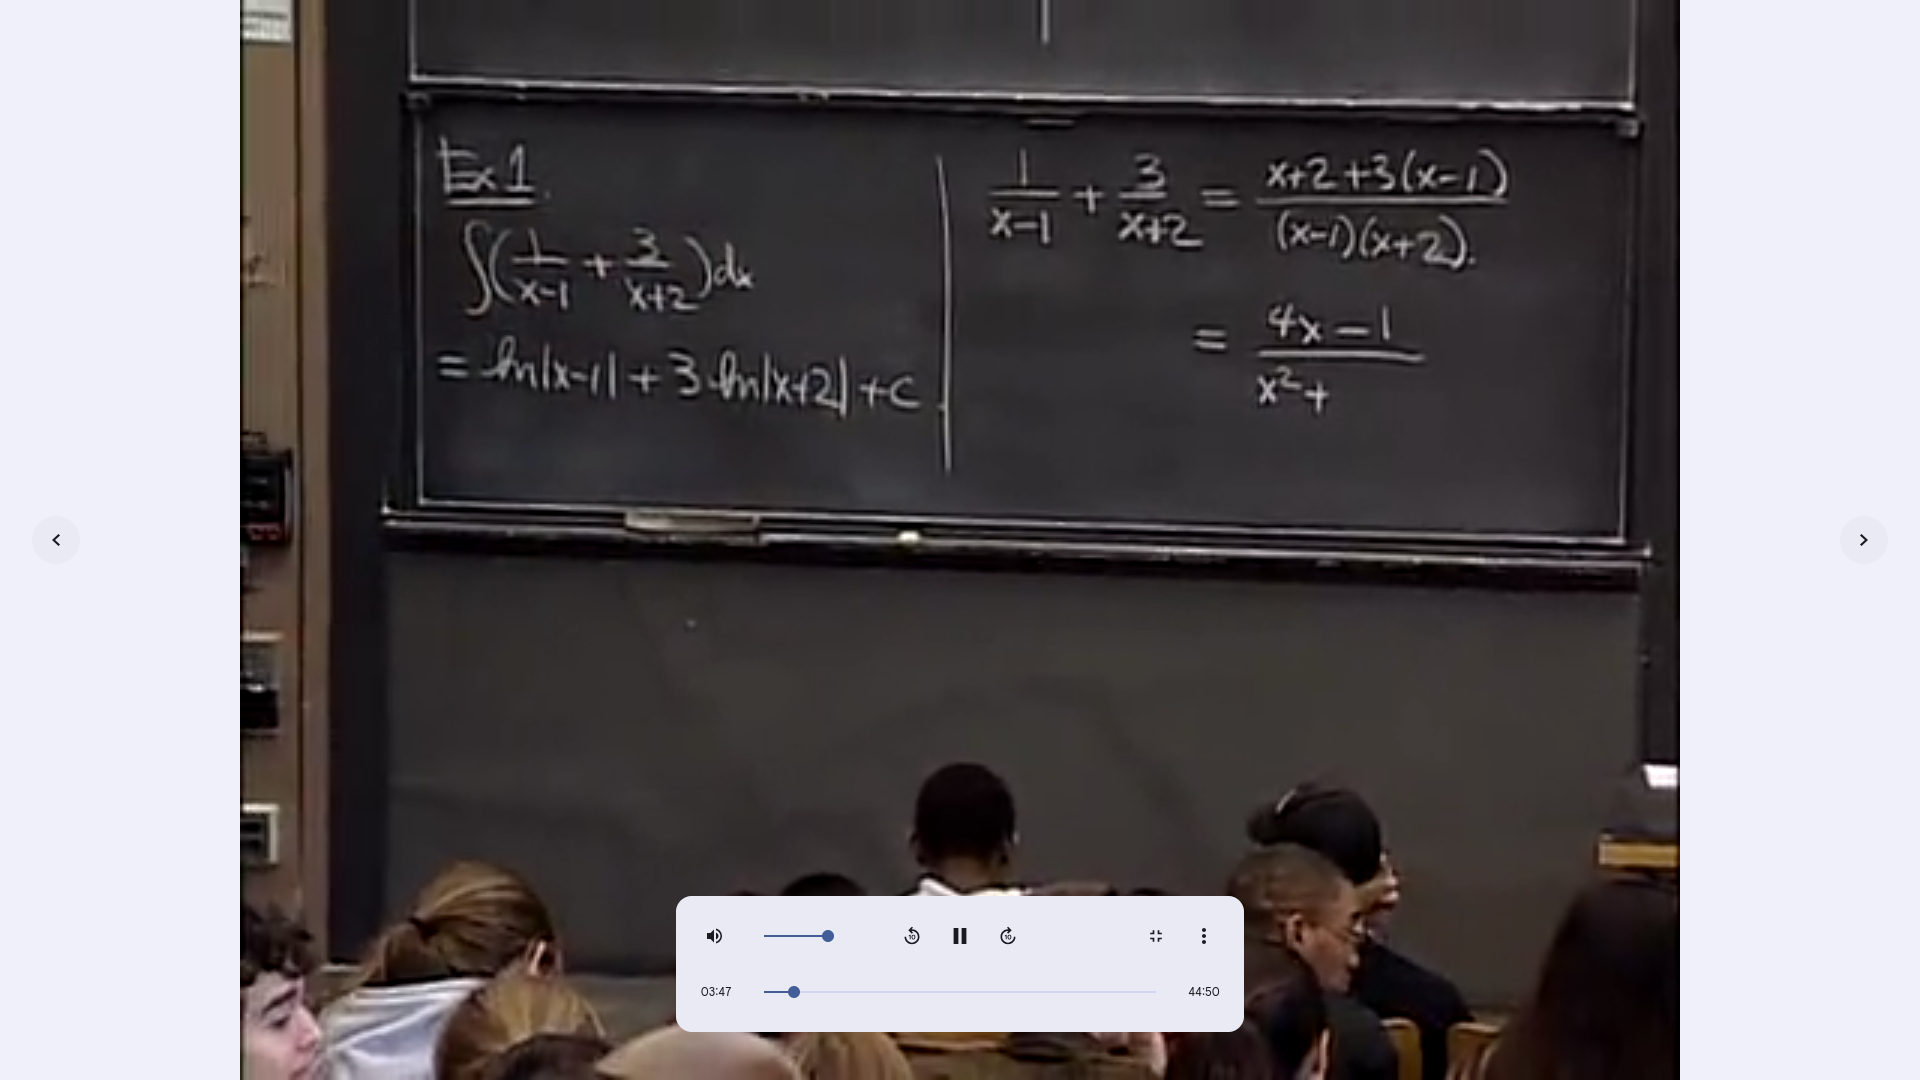 Ex 1.
∫(1/(x-1) + 3/(x+2))dx
= ln|x-1| + 3 ln|x+2| + c.
1/(x-1) + 3/(x+2) = (x+2+3(x-1))/((x-1)(x+2)).
= (4x-1)/(x²+
10
10
03:47
44:50